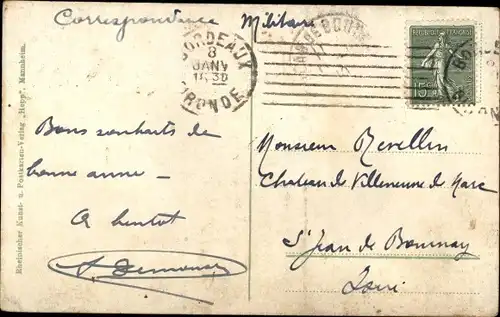 Correspondance Militaire
BORDEAUX
8
JANV
GIRONDE
RÉPUBLIQUE FRANÇAISE
Bons souhaits de
bonne année -
A bientot
Monsieur Revellin
Chateau de Villeneuve de Marc
St Jean de Bournay
Isère
Rheinischer Kunst- u. Postkarten-Verlag „Hepp", Mannheim.